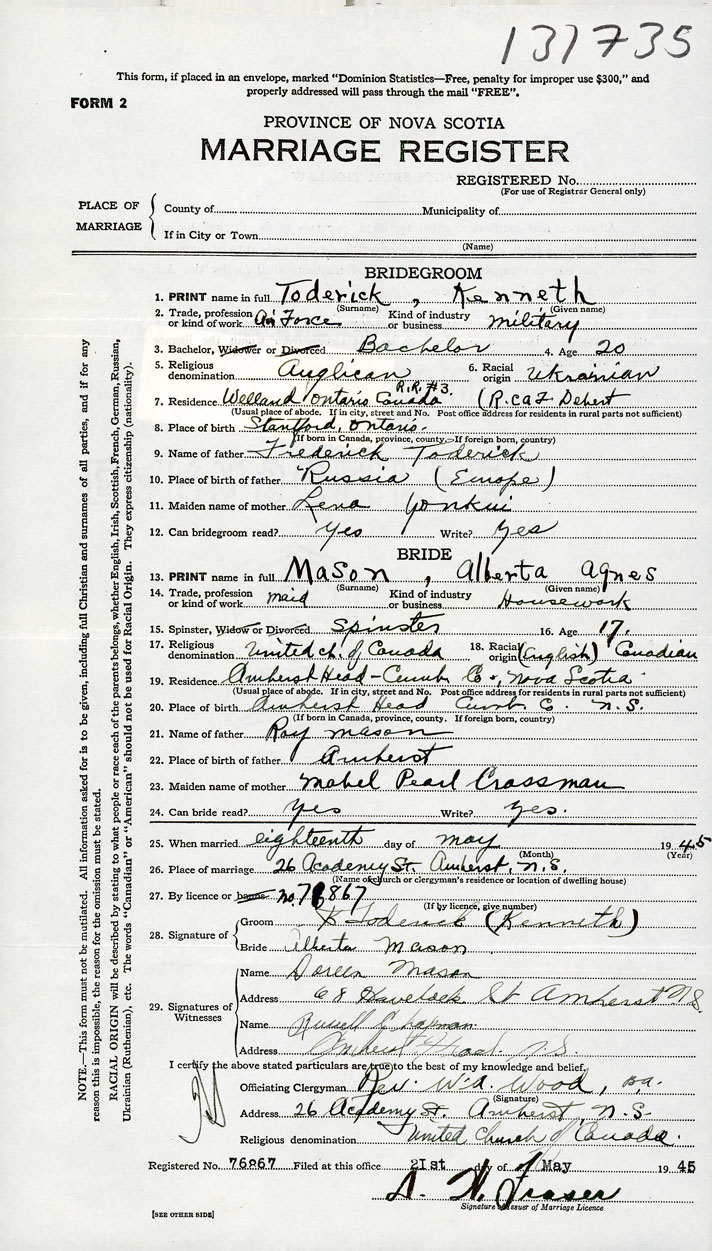 131735
This form, if placed in an envelope, marked "Dominion Statistics—Free, penalty for improper use $300," and
properly addressed will pass through the mail "FREE".
FORM 2
PROVINCE OF NOVA SCOTIA
MARRIAGE REGISTER
REGISTERED No.
(For use of Registrar General only)
PLACE OF MARRIAGE
County of Municipality of
If in City or Town
(Name)
BRIDEGROOM
1. PRINT name in full Toderick , Kenneth
(Surname) (Given name)
2. Trade, profession or kind of work Air Force Kind of industry or business military
3. Bachelor, Widower or Divorced Bachelor 4. Age 20
5. Religious denomination Anglican 6. Racial origin Ukrainian
R.R. #3
7. Residence Welland Ontario Canada (R.C.A.F Debert
(Usual place of abode. If in city, street and No. Post office address for residents in rural parts not sufficient)
8. Place of birth Stamford, Ontario.
(If born in Canada, province, county. If foreign born, country)
9. Name of father Frederick Toderick
10. Place of birth of father Russia (Europe)
11. Maiden name of mother Lena
12. Can bridegroom read? Yes Write? Yes
BRIDE
13. PRINT name in full Mason , Alberta Agnes
(Surname) (Given name)
14. Trade, profession or kind of work maid Kind of industry or business Housework
15. Spinster, Widow or Divorced Spinster 16. Age 17.
17. Religious denomination United ch. of Canada 18. Racial origin (English) Canadian
19. Residence Amherst Head - Cumb. Co., Nova Scotia.
(Usual place of abode. If in city, street and No. Post office address for residents in rural parts not sufficient)
20. Place of birth Amherst Head Cumb. Co. N.S.
(If born in Canada, province, county. If foreign born, country)
21. Name of father Roy Mason
22. Place of birth of father Amherst
23. Maiden name of mother Mabel Pearl Crossman
24. Can bride read? yes Write? yes.
25. When married eighteenth day of may 1945
(Month) (Year)
26. Place of marriage 26 Academy St. Amherst, N.S.
(Name of church or clergyman's residence or location of dwelling house)
27. By licence or banns no. 76867
(If by licence, give number)
28. Signature of
Groom K Toderick (Kenneth)
Bride Alberta Mason
29. Signatures of Witnesses
Name Doreen Mason
Address 68 Havelock St Amherst N.S.
Name Russell Chapman
Address Amherst Head. N.S.
I certify the above stated particulars are true to the best of my knowledge and belief.
Officiating Clergyman Rev. W.A. Wood, B.A.
(Signature)
Address 26 Academy St. Amherst, N.S.
Religious denomination United Church of Canada.
Registered No. 76867 Filed at this office 21st day of May 1945
Fraser
Signature of Issuer of Marriage Licence
[SEE OTHER SIDE]
NOTE.—This form must not be mutilated. All information asked for is to be given, including full Christian and surnames of all parties, and if for any
reason this is impossible, the reason for the omission must be stated.
RACIAL ORIGIN will be described by stating to what people or race each of the parents belongs, whether English, Irish, Scottish, French, German, Russian,
Ukrainian (Ruthenian), etc. The words "Canadian" or "American" should not be used for Racial Origin. They express citizenship (nationality).